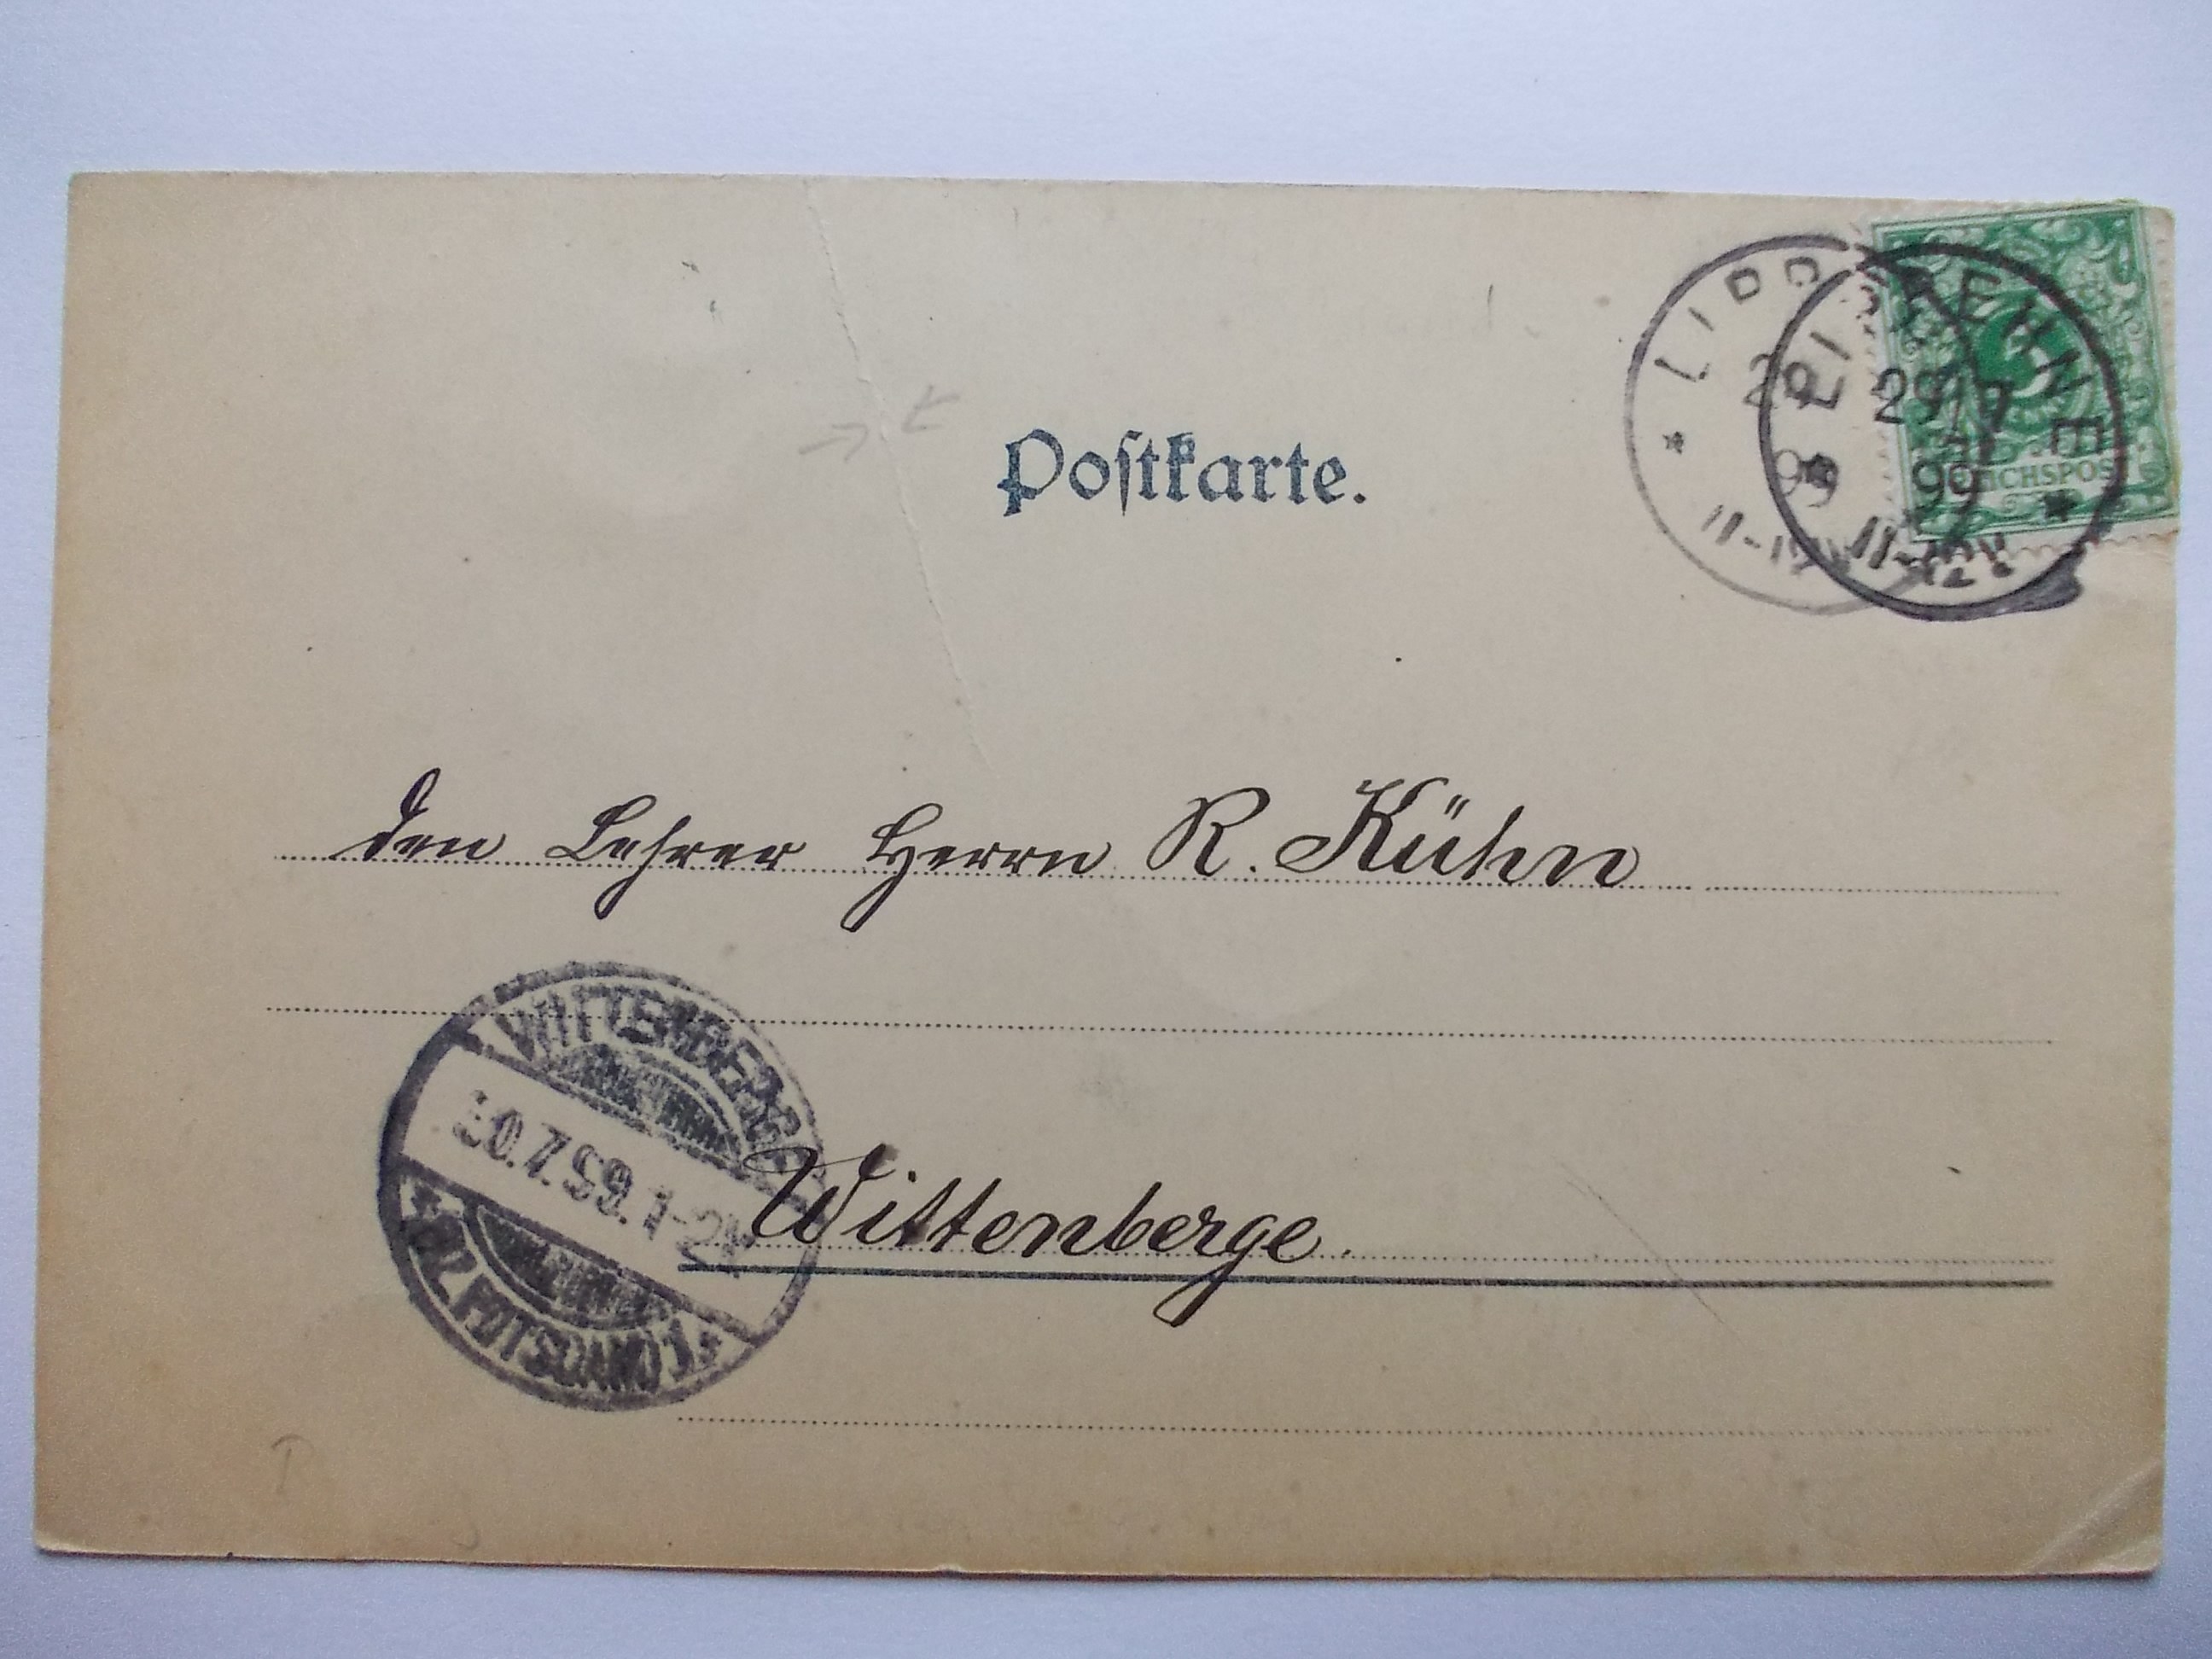 Postkarte.
29/7
99
REICHSPOST
den Lehrer Herrn R. Kühn
WITTENBERGE
30.7.99. 1-2N
BZ. POTSDAM) 1.
Wittenberge.